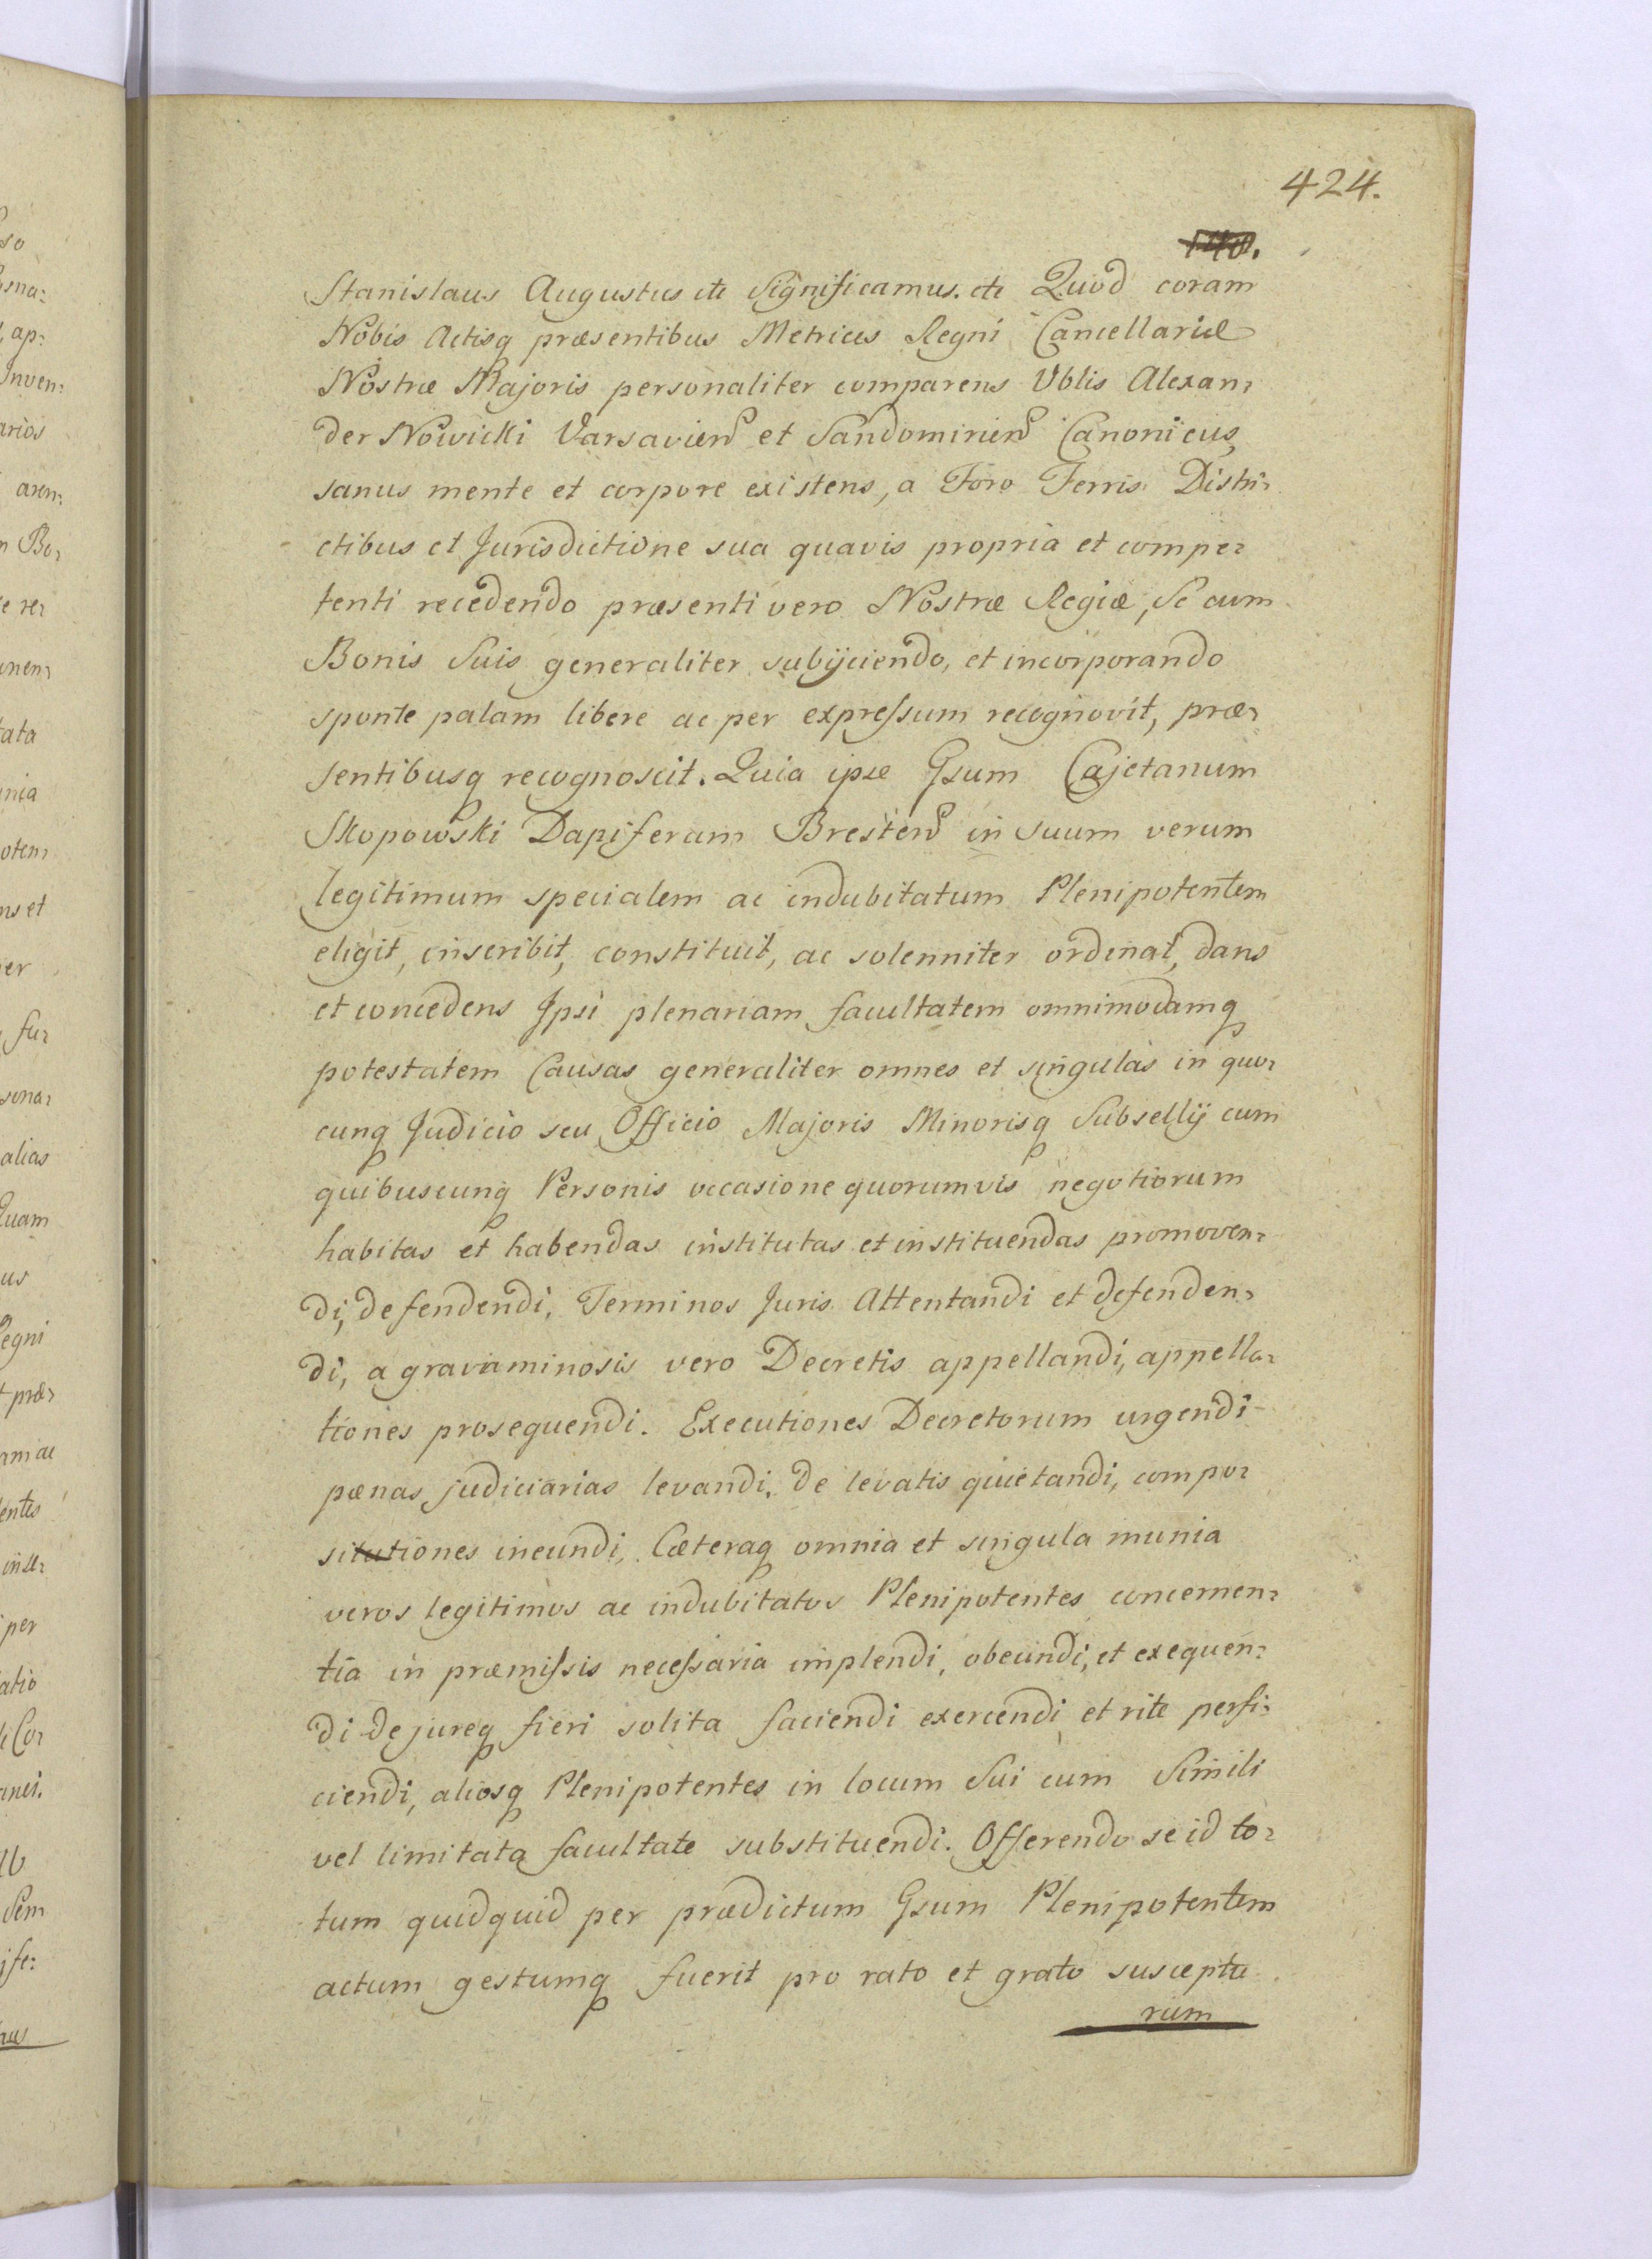 424.
Stanislaus Augustus etc Significamus. etc Quod coram
Nobis Actisq præsentibus Metrices Regni Cancellariæ
Nostræ Majoris personaliter comparens Vblis Alexan=
der Nowicki Varsavien et Sandomirien Canonicus,
sanus mente et corpore existens, a Foro Terris Distri=
ctibus et Jurisdictione sua quavis propria et compe=
tenti recedendo præsenti vero Nostræ Regiæ, Se cum
Bonis Suis generaliter subijciendo, et incorporando
sponte palam libere ac per expressum recognovit, præ=
sentibusq recognoscit. Quia ipse Gsum Cajetanum
Skopowski Dapiferum Bresten in suum verum
legitimum specialem ac indubitatum Plenipotentem
eligit, inscribit, constituit, ac solenniter ordinat, dans
et concedens Ipsi plenariam facultatem omnimodamq
potestatem Causas generaliter omnes et singulas in quo=
cunq Judicio seu Officio Majoris Minorisq Subsellij cum
quibuscunq Personis occasione quorumvis negotiorum
habitas et habendas institutas et instituendas promoven=
di, defendendi, Terminos Juris Attentandi et defenden=
di, a gravaminosis vero Decretis appellandi, appella=
tiones prosequendi. Executiones Decretorum urgendi
pænas judiciarias levandi, de levatis quietandi, compo=
sitiones ineundi, Cæteraq omnia et singula munia
veros legitimos ac indubitatos Plenipotentes concernen=
tia in præmissis necessaria implendi, obeundi, et exequen=
di de jureq fieri solita faciendi exercendi et rite perfi=
ciendi, aliosq Plenipotentes in locum Sui cum Simili
vel limitata facultate substituendi. Offerendo se id to=
tum quidquid per prædictum Gsum Plenipotentem
actum gestumq fuerit pro rato et grato susceptu
rum